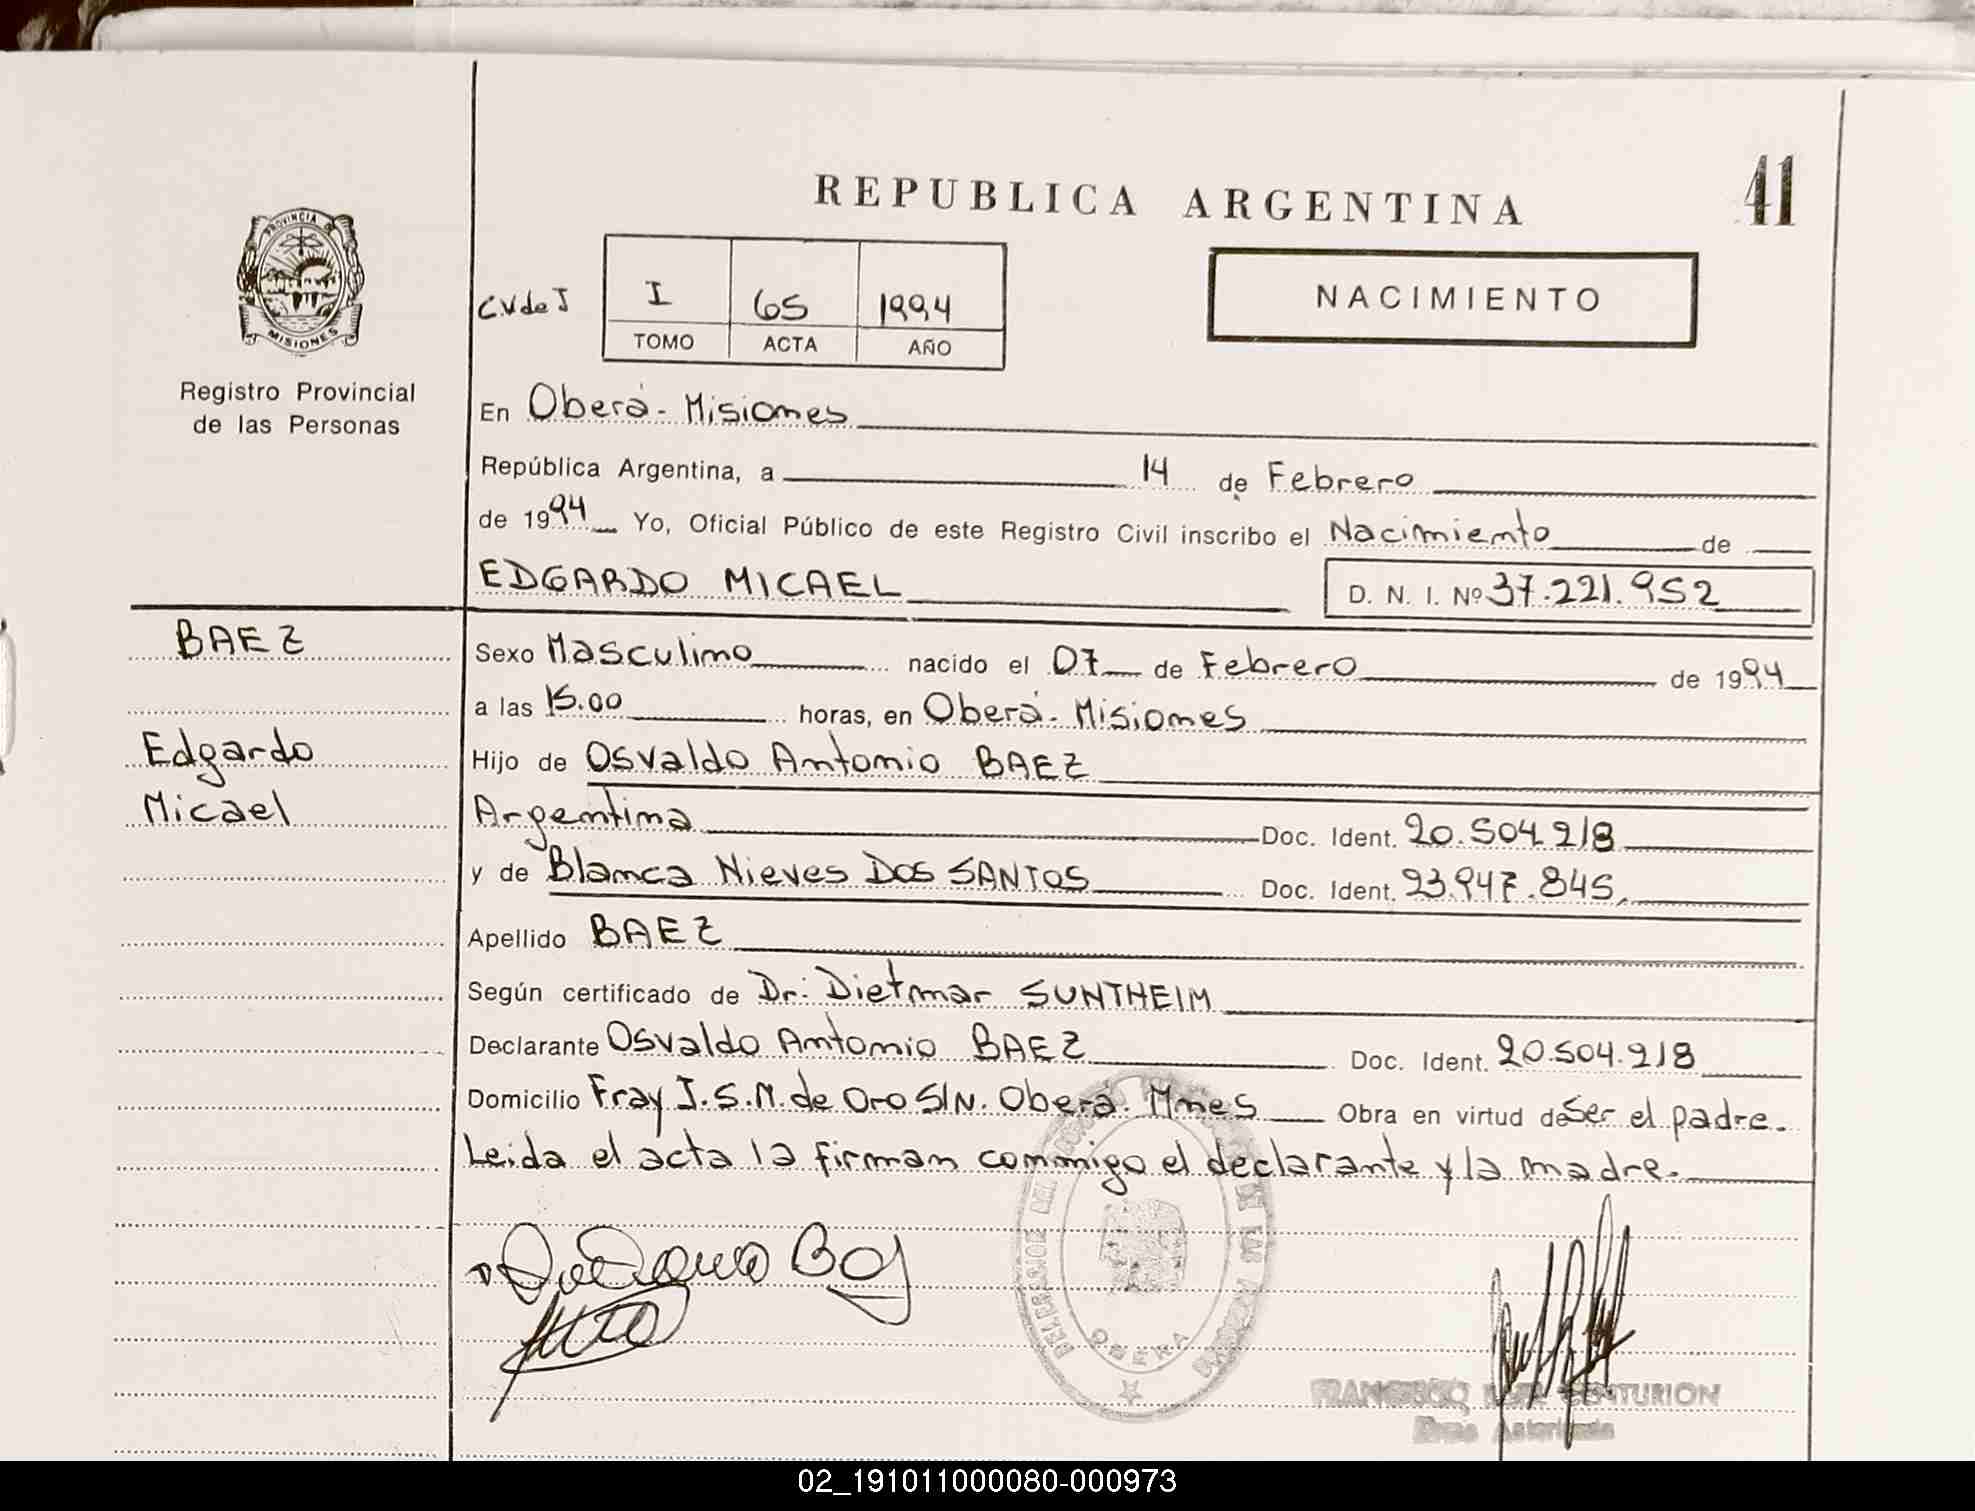 REPUBLICA ARGENTINA
41
PROVINCIA DE
MISIONES
Registro Provincial
de las Personas
C.V de I
I 65 1994
TOMO ACTA AÑO
NACIMIENTO
En Oberá - Misiones
República Argentina, a 14 de Febrero
de 1994 Yo, Oficial Público de este Registro Civil inscribo el Nacimiento de
EDGARDO MICAEL D. N. I. Nº 37.221.952
BAEZ
Edgardo
Micael
Sexo Masculino nacido el 07 de Febrero de 1994
a las 15.00 horas, en Oberá - Misiones
Hijo de Osvaldo Antonio BAEZ
Argentina Doc. Ident. 20.504.218
y de Blanca Nieves DOS SANTOS Doc. Ident. 23.947.845
Apellido BAEZ
Según certificado de Dr: Dietmar SUNTHEIM
Declarante Osvaldo Antonio BAEZ Doc. Ident. 20.504.218
Domicilio Fray J.S.M. de Oro S/N. Oberá. Mnes Obra en virtud de Ser el padre.
Leida el acta la firman conmigo el declarante y la madre.
OBERA
CENTURION
02_191011000080-000973